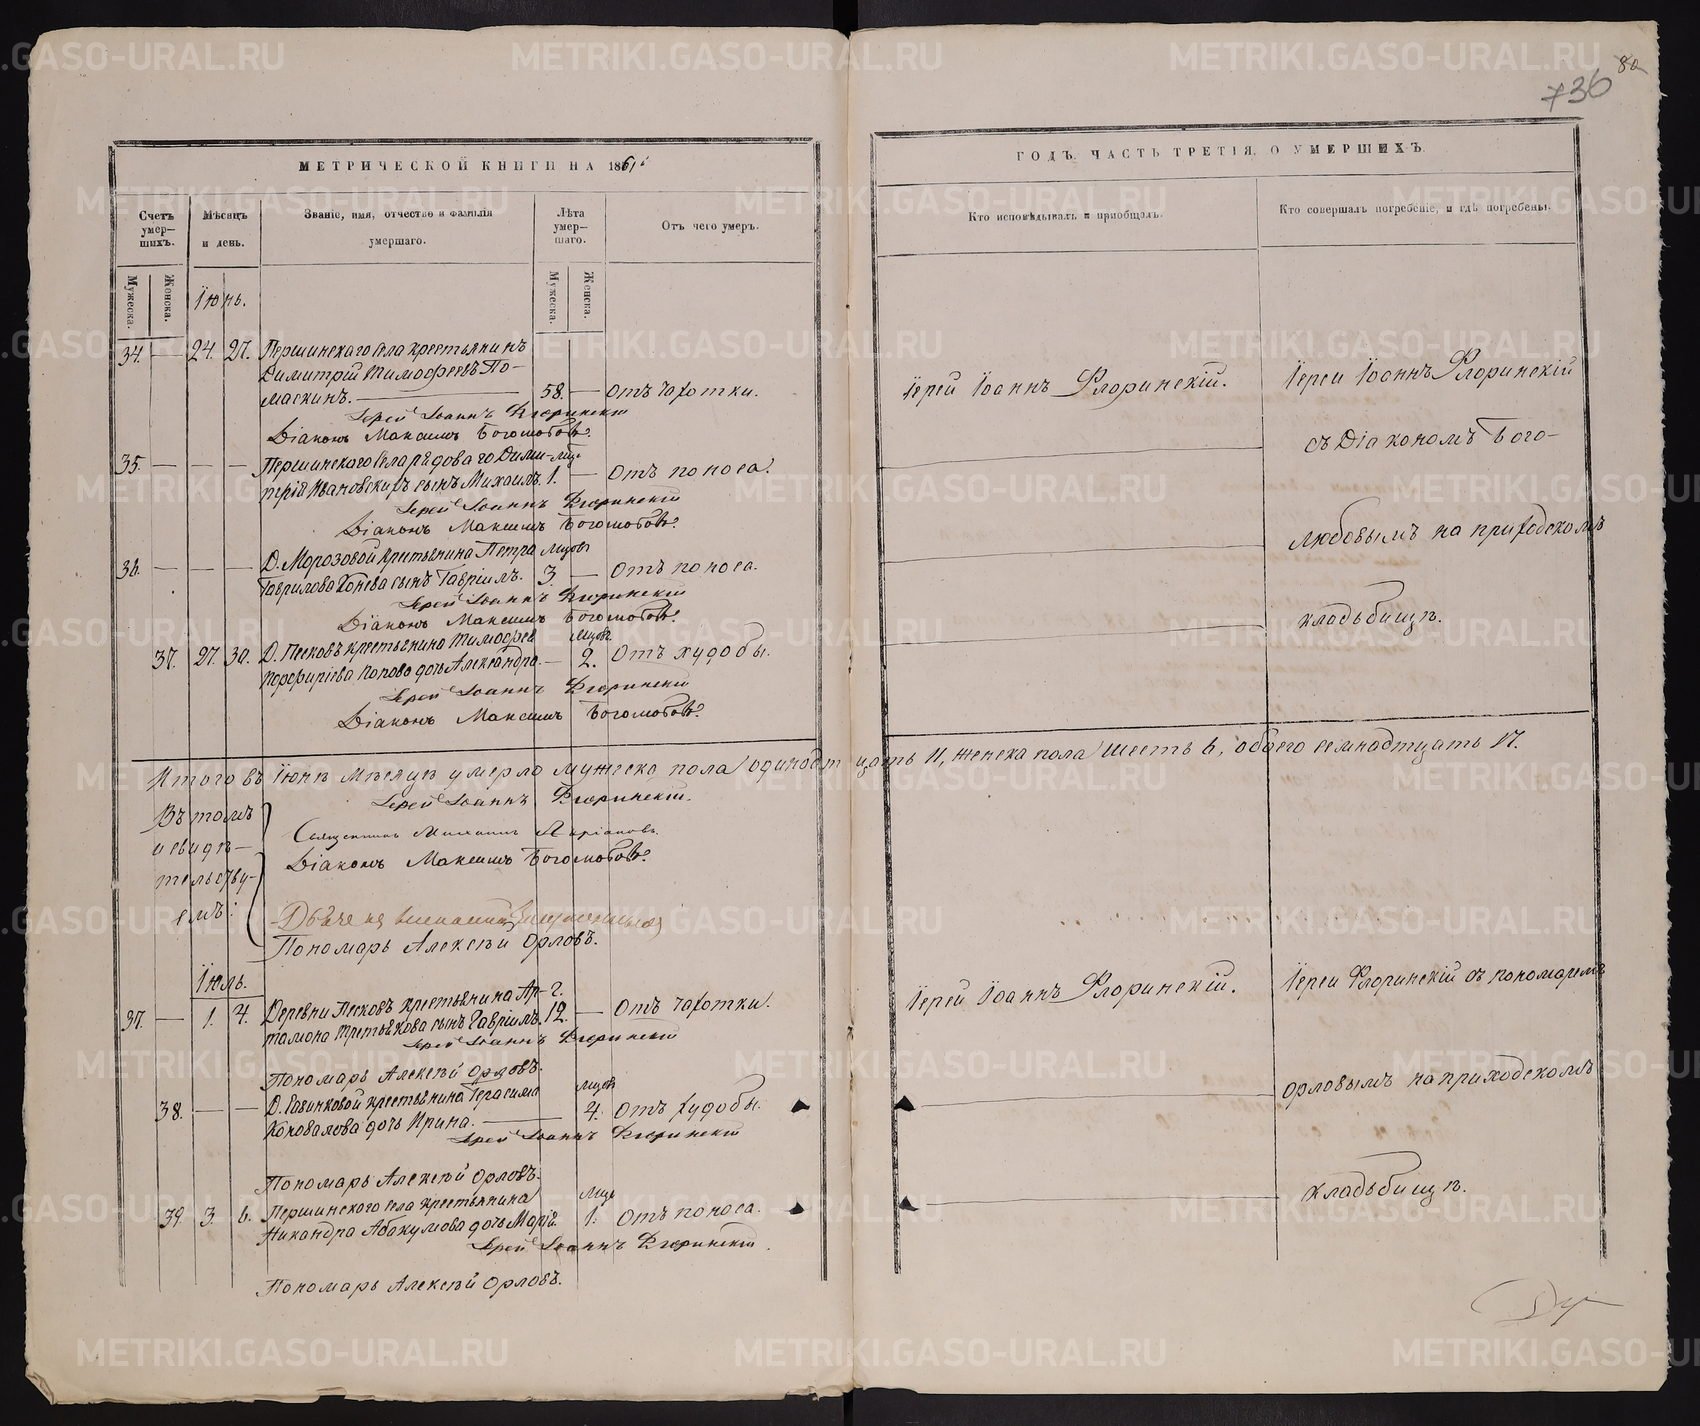 736
80
МЕТРИЧЕСКОЙ КНИГИ НА 1861
ГОДЪ, ЧАСТЬ ТРЕТІЯ, О УМЕРШИХЪ.
Счетъ умер-шихъ.
Мѣсяцъ и день.
Званіе, имя, отчество и фамилія умершаго.
Лѣта умер-шаго.
Отъ чего умеръ.
Кто исповѣдывалъ и пріобщалъ.
Кто совершалъ погребеніе, и гдѣ погребены.
Мужеска.
Женска.
Мужеска.
Женска.
Іюнь.
34. — 24. 27. Першинскаго села крестьянинъ
Димитрій Тимофеевъ По-
маскинъ. 58. — Отъ чахотки.
Іерей Іоаннъ Флоринскій
Діаконъ Максимъ Богомоловъ.
Іерей Іоаннъ Флоринскій.
Іерей Іоаннъ Флоринскій
съ Діакономъ Бого-
любовымъ на приходскомъ
кладьбищѣ.
35. — — — Першинскаго села рядоваго Дими-
трія Ивановскихъ сынъ Михаилъ. 1. — Отъ поноса.
Іерей Іоаннъ Флоринскій
Діаконъ Максимъ
36. — — — Д. Морозовой крестьянина Петра мцовъ
Гаврилова Конева сынъ Гавріилъ. 3. — Отъ поноса.
Іерей Іоаннъ Флоринскій
Діаконъ Максимъ
37. 27. 30. Д. Песковъ крестьянина Тимофея мцовъ
Порфиріева Попова дочь Александра. — 2. Отъ худобы.
Іерей Іоаннъ Флоринскій
Діаконъ Максимъ
Итого въ Іюнѣ мѣсяцѣ умерло мужеска пола одинадцать 11, женска пола шесть 6, обоего семнадтцать 17.
Въ томъ
и свидѣ-
тельству-
емъ:
Іерей Іоаннъ Флоринскій.
Священникъ Михаилъ
Діаконъ Максимъ
Пономарь Алексѣй Орловъ.
Іюль.
37. — 1. 4. Деревни Песковъ крестьянина Ар- г.
тамона Третьякова сынъ Гавріилъ. 12. — Отъ чахотки.
Іерей Іоаннъ Флоринскій
Пономарь Алексѣй Орловъ.
Іерей Іоаннъ Флоринскій.
Іерей Флоринскій съ пономаремъ
Орловымъ на приходскомъ
кладьбищѣ.
38. — — Д. крестьянина Герасима мцовъ
Коновалова дочь Ирина. 4. Отъ худобы.
Іерей Іоаннъ Флоринскій
Пономарь Алексѣй Орловъ.
39. 3. 6. Першинскаго села крестьянина мцъ
Никандра Абакумова дочь Марія. 1. Отъ поноса.
Іерей Іоаннъ Флоринскій.
Пономарь Алексѣй Орловъ.
METRIKI.GASO-URAL.RU